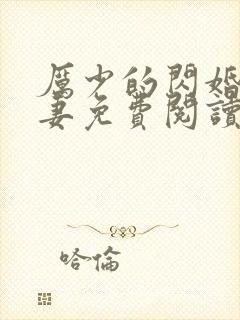 厲少的閃婚
妻免費閱讀
哈倫